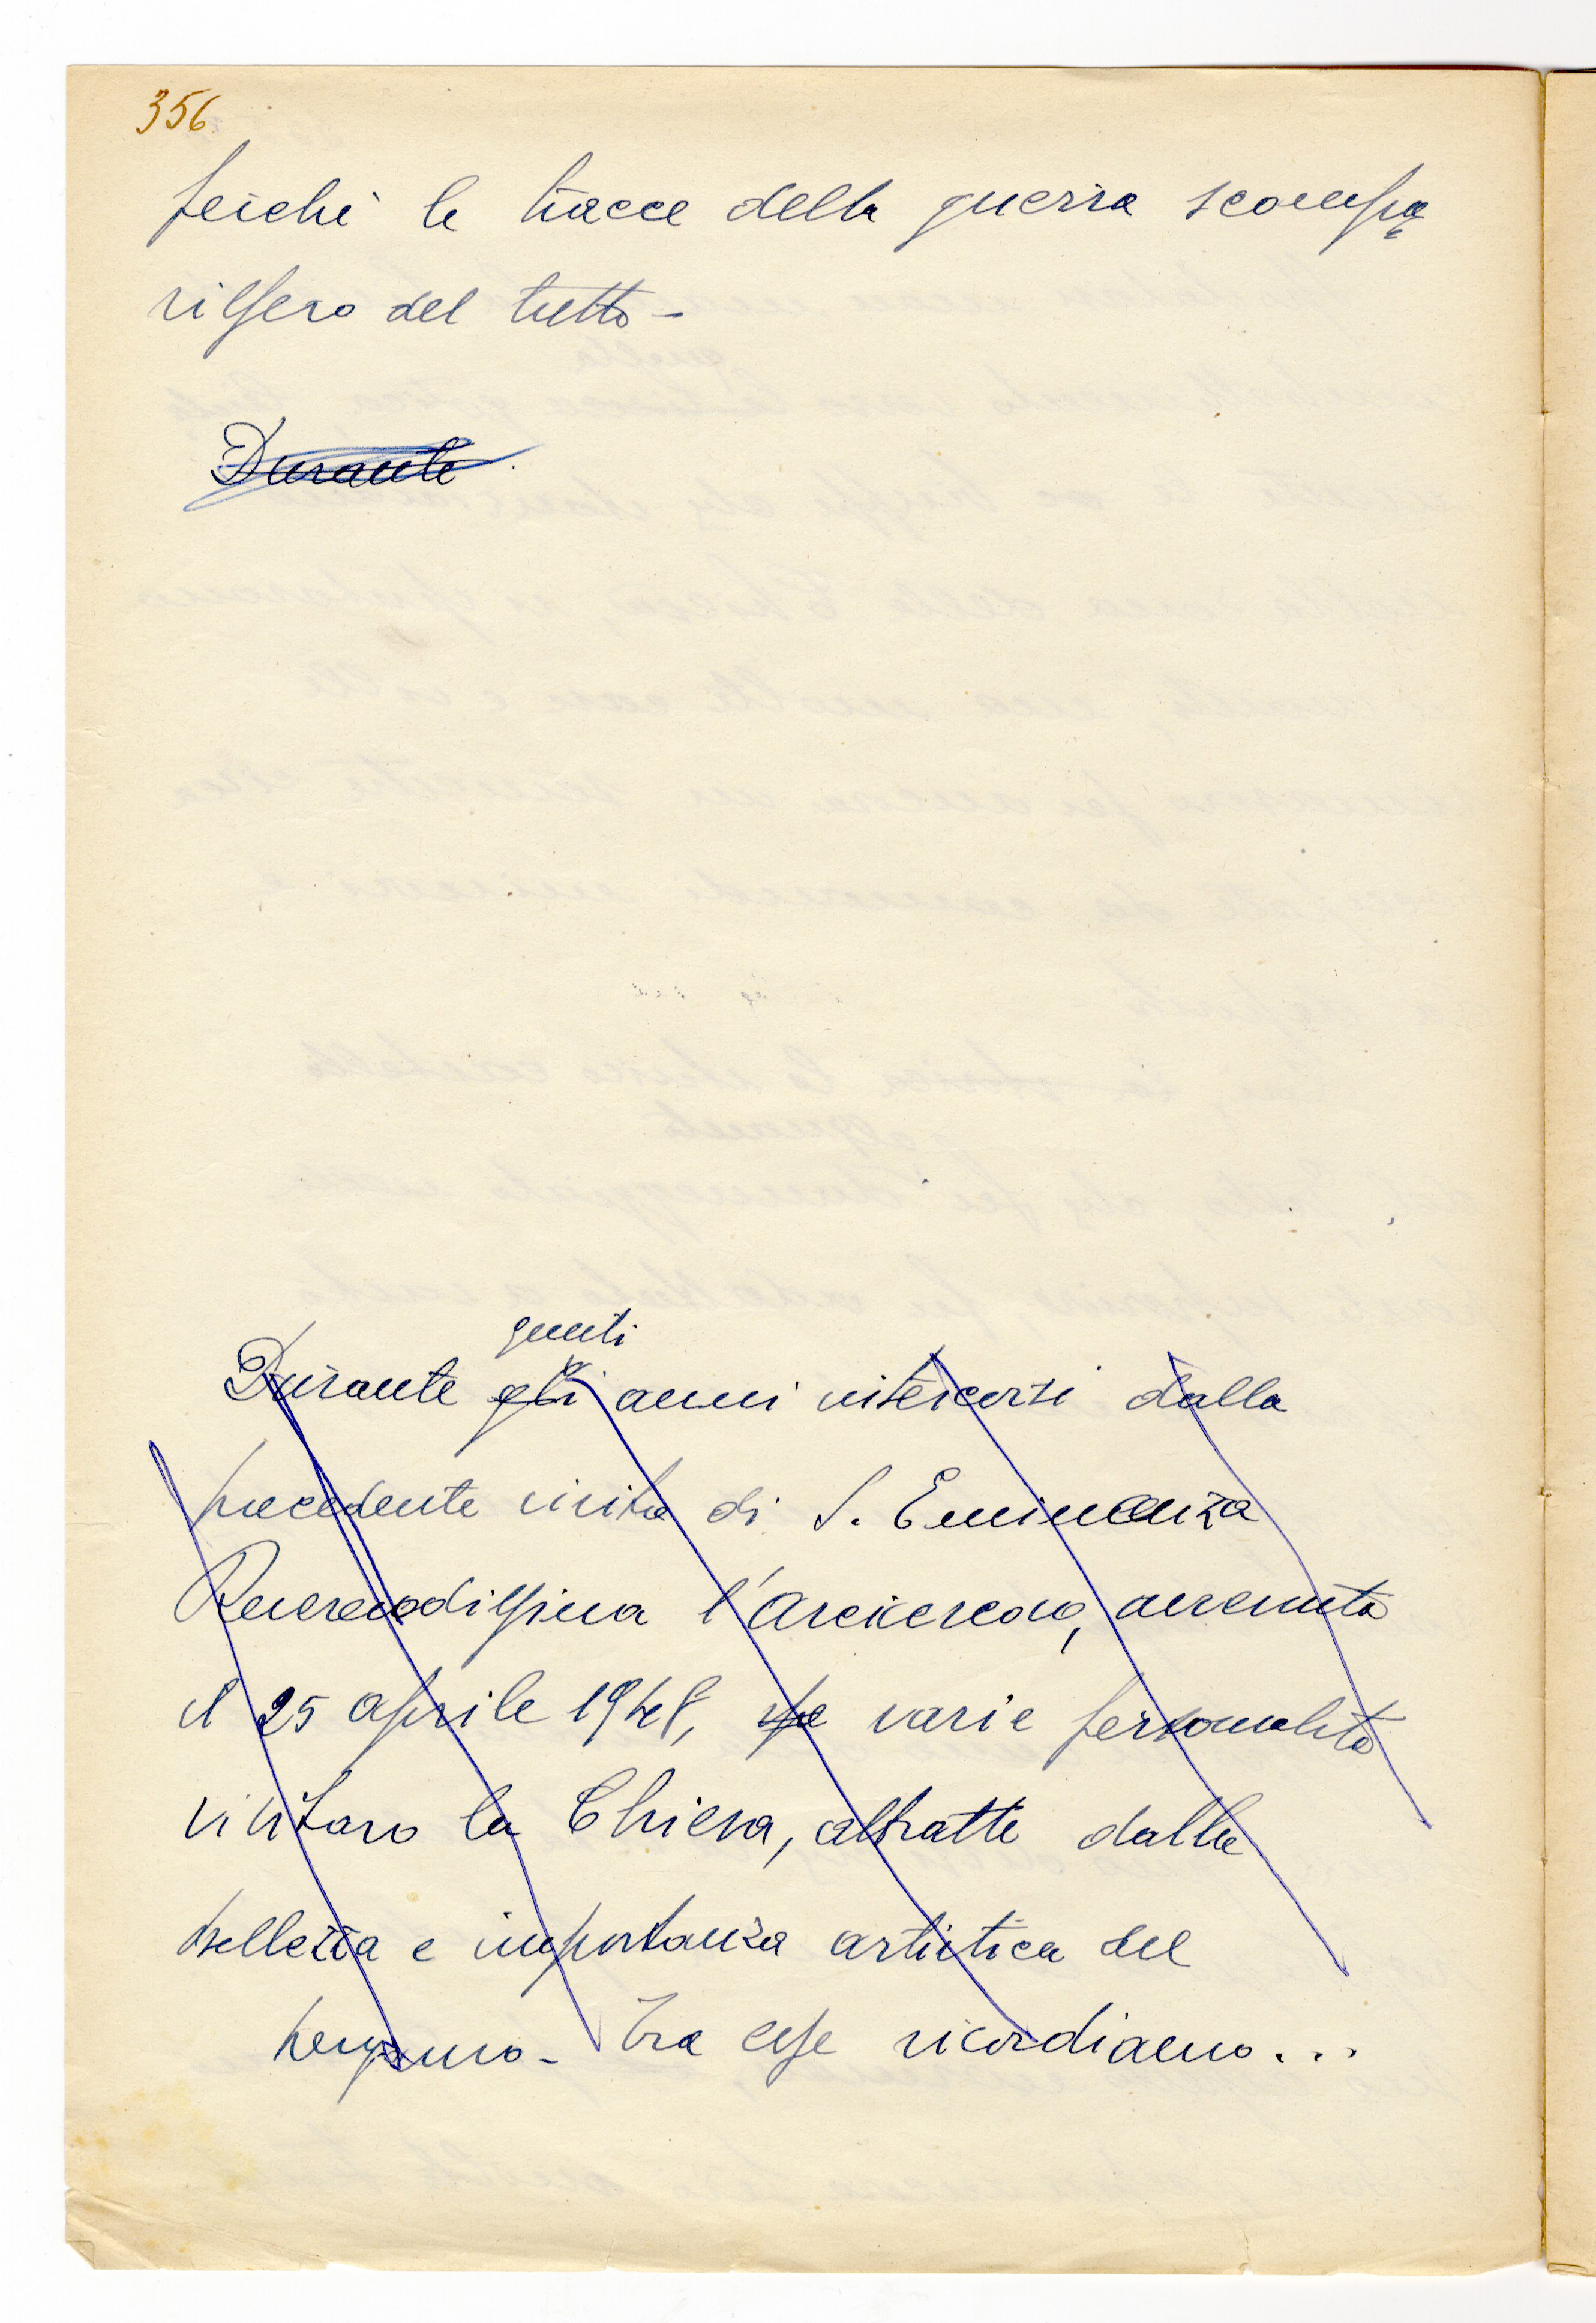 356
perché le tracce della guerra scompa
rissero del tutto -
Durante
questi
Durante gli anni intercorsi dalla
precedente visita di S. Eminenza
Reverendissima l'Arcivescovo, avvenuta
il 25 aprile 1948, varie personalità
visitaro la Chiesa, attratte dalla
bellezza e importanza artistica del
pergamo - Tra esse ricordiamo...